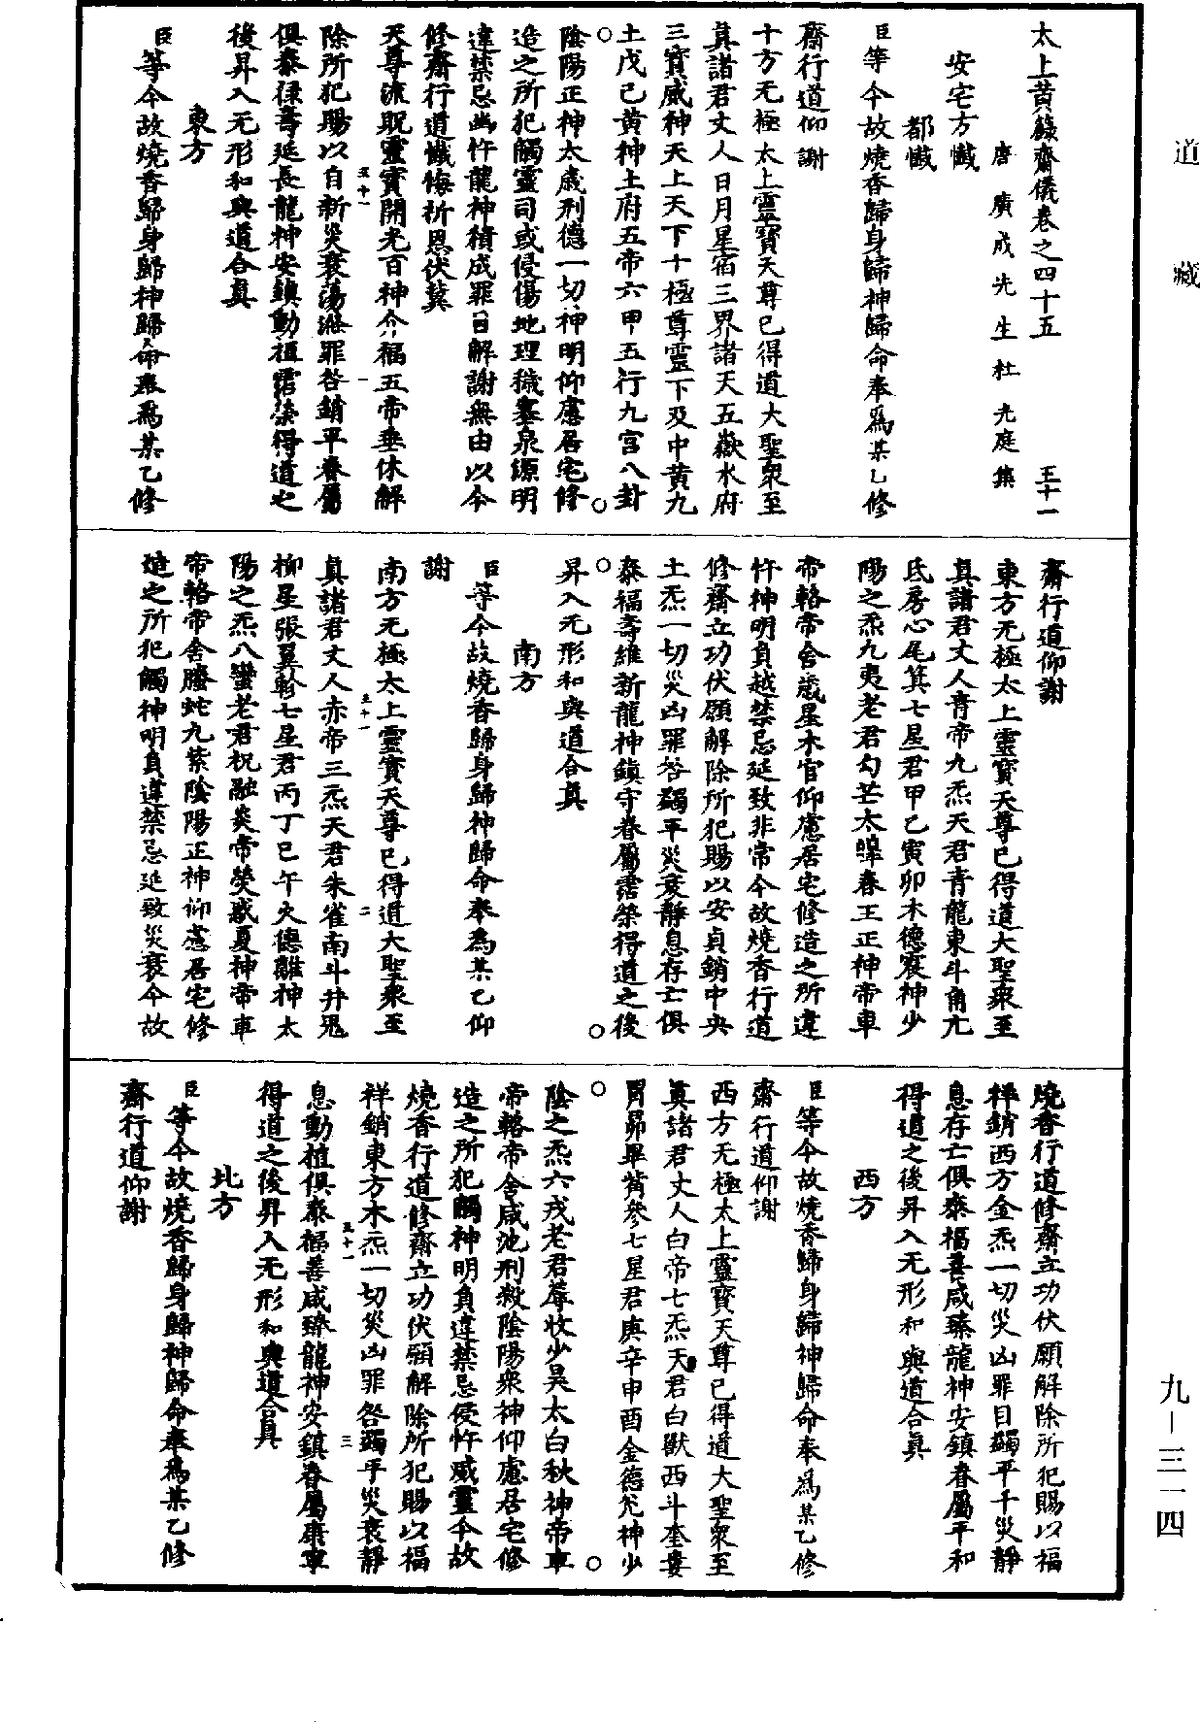 道藏
太上黃籙齋儀卷之四十五 五十一
唐廣成先生杜光庭集
安宅方懺
都懺
臣等今故燒香歸身歸神歸命奉爲某乙修
齋行道仰謝
十方无極太上靈寶天尊已得道大聖衆至
真諸君丈人日月星宿三界諸天五嶽水府
三寶威神天上天下十極尊靈下及中黃九
土戊己黃神土府五帝六甲五行九宮八卦
陰陽正神太歲刑德一切神明仰慮居宅修
造之所犯觸靈司或侵傷地理穢塞泉源明
違禁忌幽忤龍神積成罪目解謝無由以今
修齋行道懺悔祈恩伏冀
天尊流眖靈寶開光百神介福五帝垂休解
五十一 一
除所犯賜以自新災衰蕩滌罪咎銷平眷屬
俱泰祿壽延長龍神安鎮動植霑榮得道之
後昇入无形和與道合真
東方
臣等今故燒香歸身歸神歸命奉爲某乙修
齋行道仰謝
東方无極太上靈寶天尊已得道大聖衆至
真諸君丈人青帝九炁天君青龍東斗角亢
氐房心尾箕七星君甲乙寅卯木德震神少
陽之炁九夷老君勾芒太皞春王正神帝車
帝輅帝舍歲星木官仰慮居宅修造之所違
忤神明負越禁忌延致非常今故燒香行道
修齋立功伏願解除所犯賜以安貞銷中央
土炁一切災凶罪咎蠲平災衰靜息存亡俱
泰福壽維新龍神鎮守眷屬霑榮得道之後
昇入无形和與道合真
南方
臣等今故燒香歸身歸神歸命奉爲某乙仰
謝
南方无極太上靈寶天尊已得道大聖衆至
五十一 二
真諸君丈人赤帝三炁天君朱雀南斗井鬼
柳星張翼軫七星君丙丁巳午火德離神太
陽之炁八蠻老君祝融炎帝熒惑夏神帝車
帝輅帝舍螣蛇九紫陰陽正神仰慮居宅修
造之所犯觸神明負違禁忌延致災衰今故
燒香行道修齋立功伏願解除所犯賜以福
祥銷西方金炁一切災凶罪目蠲平千災靜
息存亡俱泰福善咸臻龍神安鎮眷屬平和
得道之後昇入无形和與道合真
西方
臣等今故燒香歸身歸神歸命奉爲某乙修
齋行道仰謝
西方无極太上靈寶天尊已得道大聖衆至
真諸君丈人白帝七炁天君白獸西斗奎婁
胃昴畢觜參七星君庚辛申酉金德兌神少
陰之炁六戎老君蓐收少昊太白秋神帝車
帝輅帝舍咸池刑殺陰陽衆神仰慮居宅修
造之所犯觸神明負違禁忌侵忤威靈今故
燒香行道修齋立功伏願解除所犯賜以福
祥銷東方木炁一切災凶罪咎蠲平災衰靜
五十一 三
息動植俱泰福善咸臻龍神安鎮眷屬康寧
得道之後昇入无形和與道合真
北方
臣等今故燒香歸身歸神歸命奉爲某乙修
齋行道仰謝
九－三一四